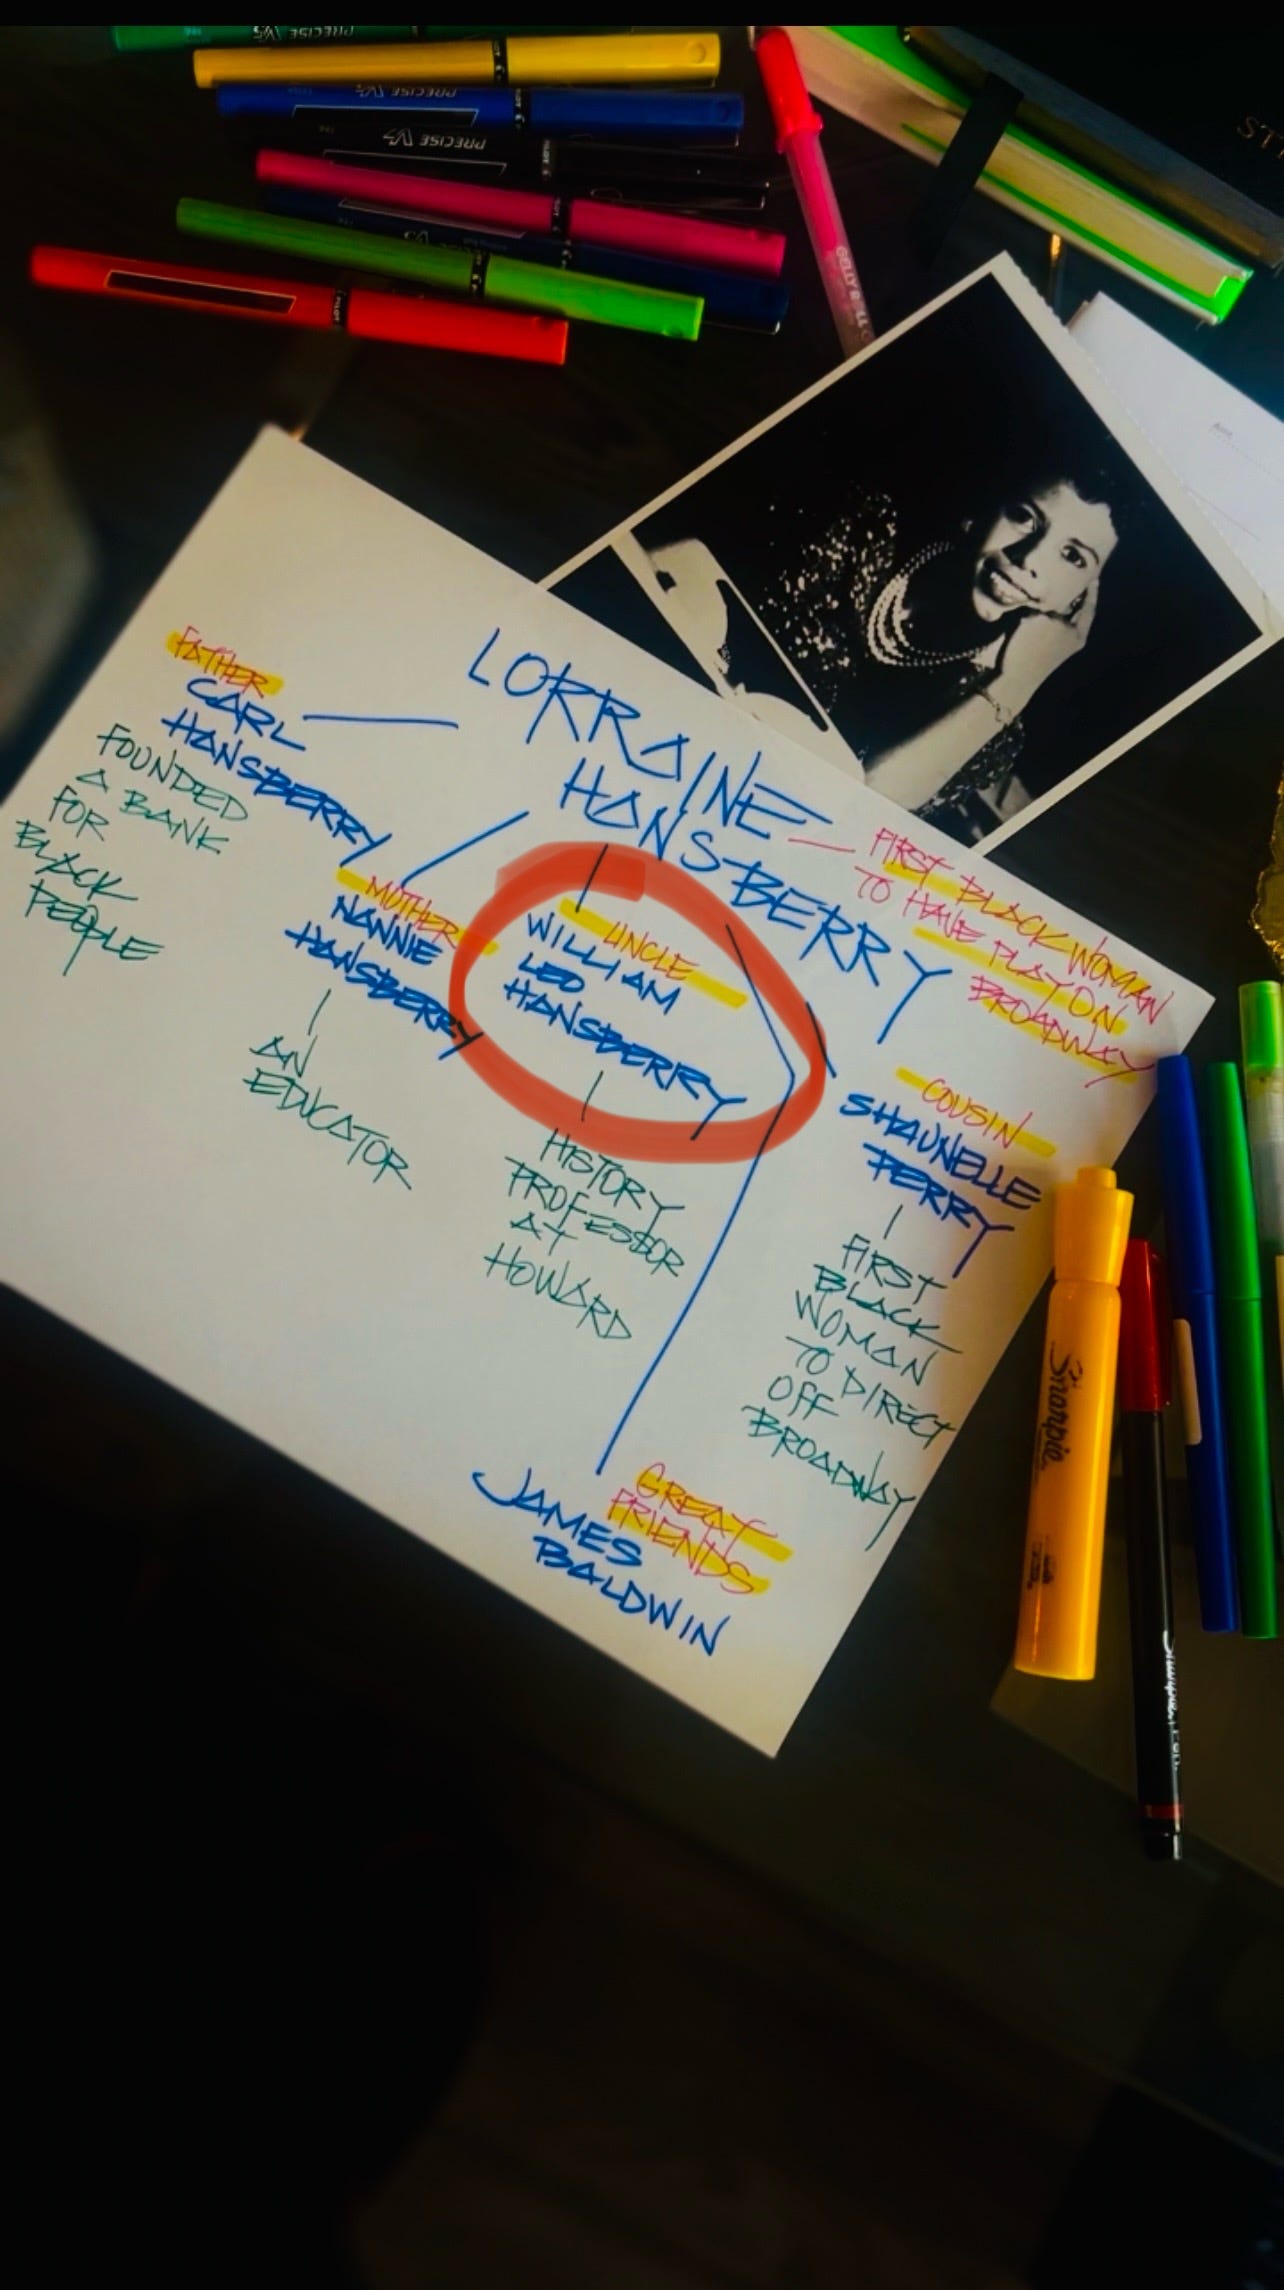 PRECISE V5
PILOT
PRECISE V5
PILOT
PRECISE V5
PILOT
PILOT
PILOT
PILOT
GELLY ROLL
LORRAINE
HANSBERRY
FIRST BLACK WOMAN
TO HAVE PLAY ON
BROADWAY
FATHER
CARL
HANSBERRY
FOUNDED
A BANK
FOR
BLACK
PEOPLE
MOTHER
NANNIE
HANSBERRY
AN
EDUCATOR
UNCLE
WILLIAM
LEO
HANSBERRY
HISTORY
PROFESSOR
AT
HOWARD
COUSIN
SHAUNELLE
PERRY
FIRST
BLACK
WOMAN
TO DIRECT
OFF
BROADWAY
GREAT
FRIENDS
JAMES
BALDWIN
Sharpie
Sharpie